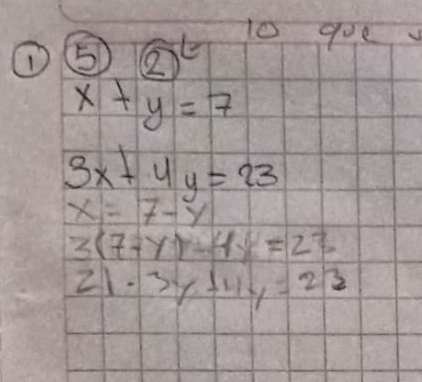 10 que
① ⑤ ②
x + y = 7
3x + 4y = 23
x = 7 - y
3(7-y) - 4y = 23
21 - 3y + 4y = 23